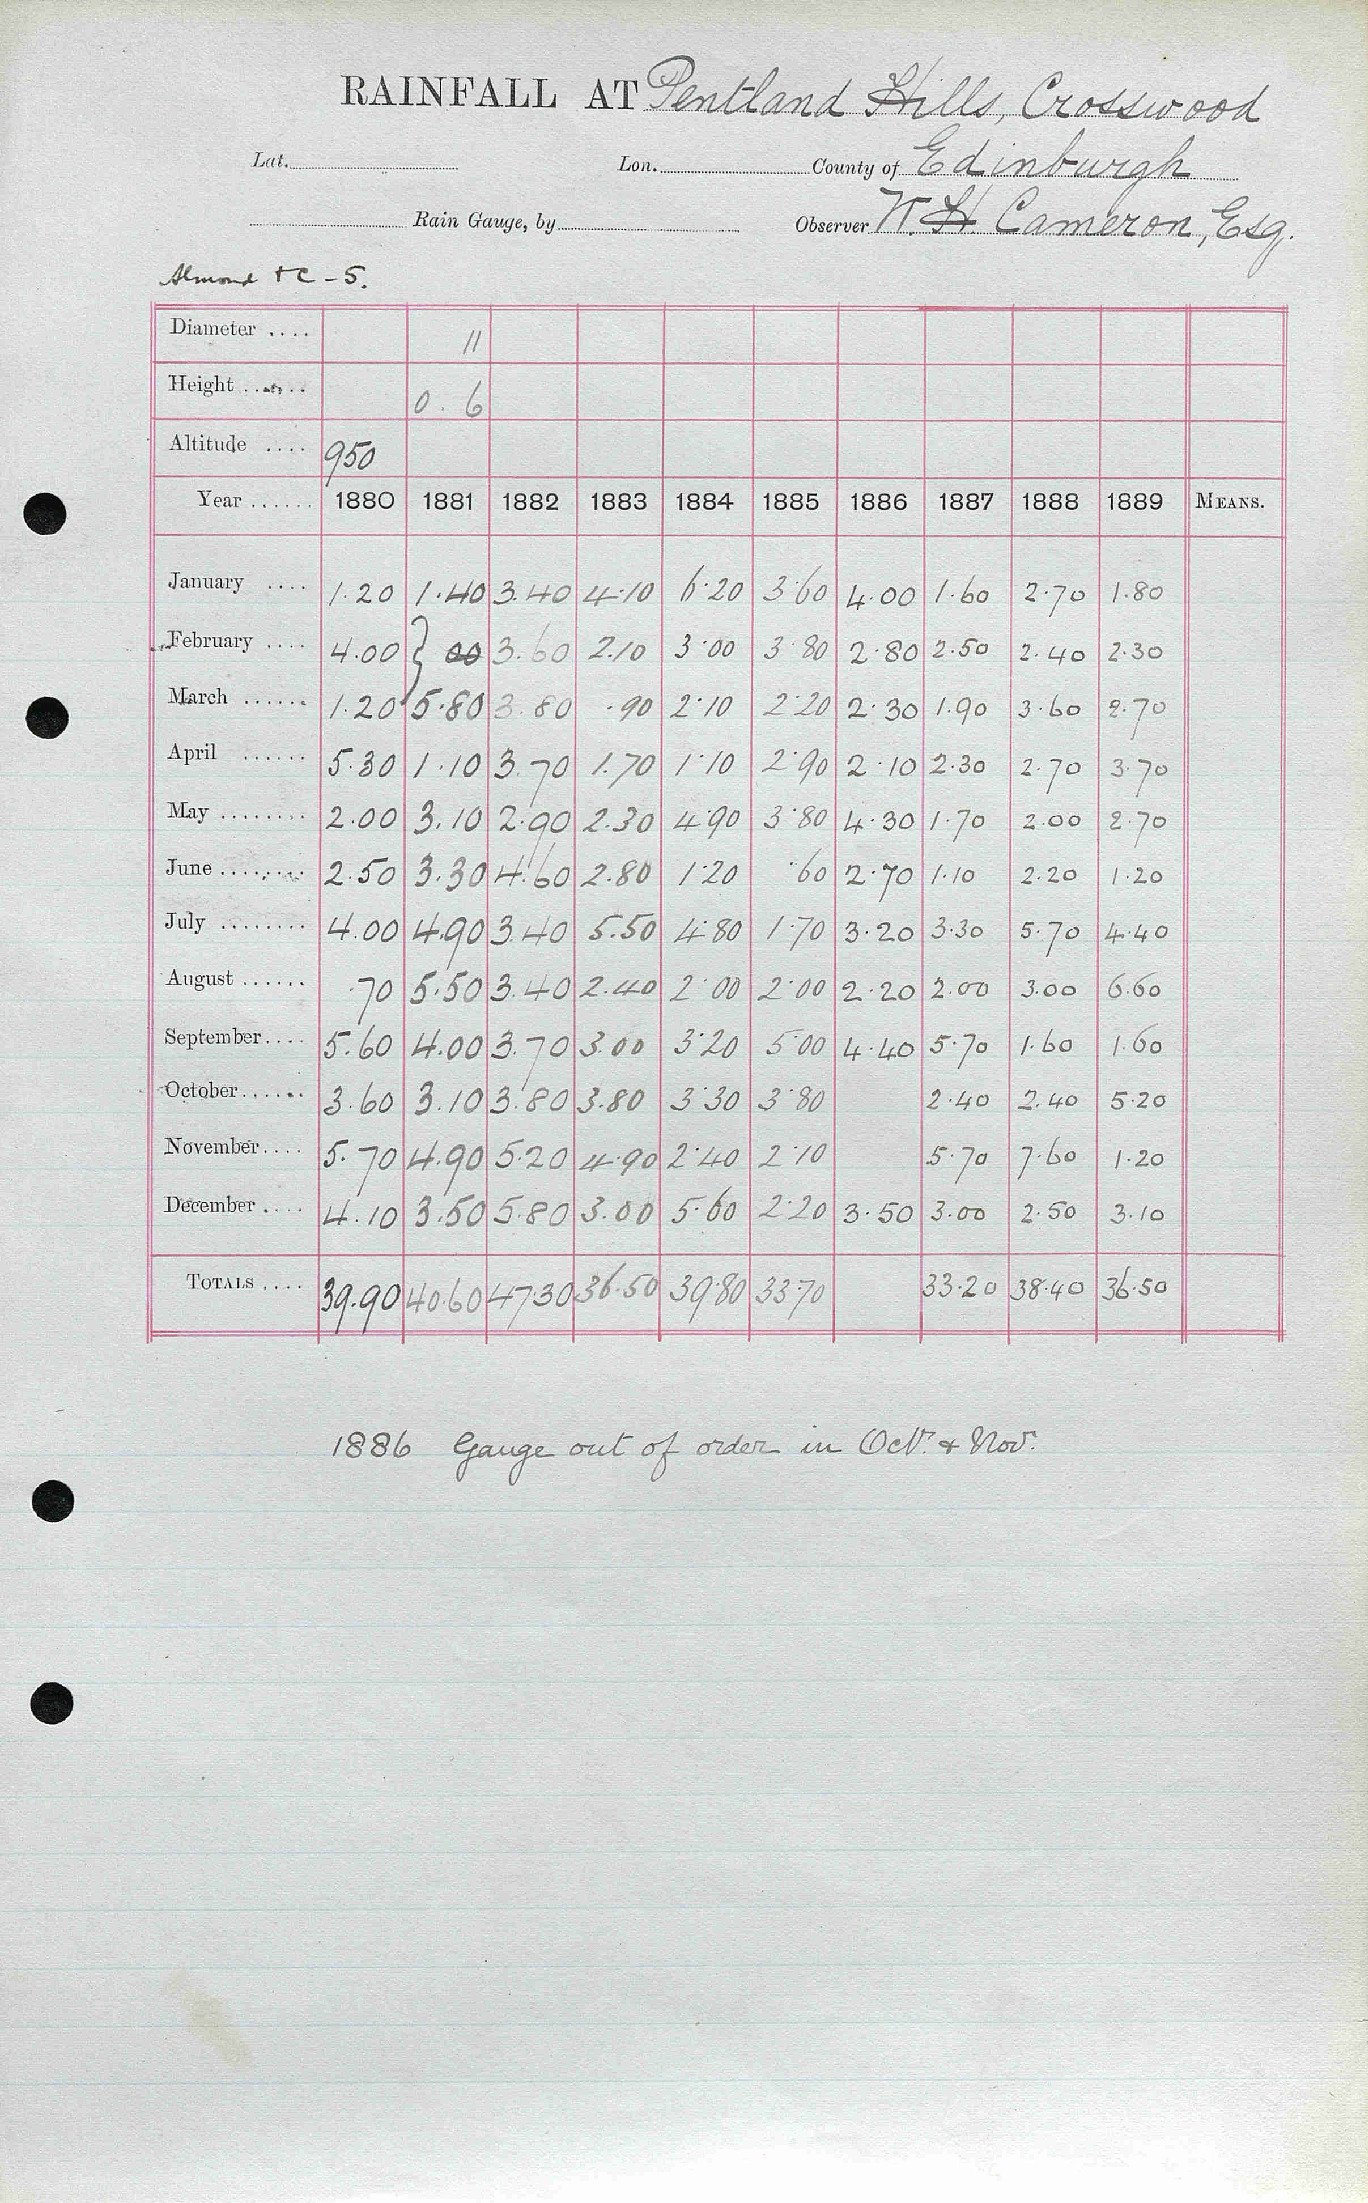 RAINFALL AT Pentland Hills, Crosswood
Lat. Lon. County of Edinburgh
Rain Gauge, by Observer W. H. Cameron, Esq.
Almond + C - 5.
Diameter .... 11
Height ...... 0. 6
Altitude .... 950
Year ...... 1880 1881 1882 1883 1884 1885 1886 1887 1888 1889 MEANS.
January .... 1.20 1.40 3.40 4.10 6.20 3.60 4.00 1.60 2.70 1.80
February .... 4.00 } 00 3.60 2.10 3.00 3.80 2.80 2.50 2.40 2.30
March ...... 1.20 5.80 3.80 .90 2.10 2.20 2.30 1.90 3.60 2.70
April ...... 5.30 1.10 3.70 1.70 1.10 2.90 2.10 2.30 2.70 3.70
May ........ 2.00 3.10 2.90 2.30 4.90 3.80 4.30 1.70 2.00 2.70
June ........ 2.50 3.30 4.60 2.80 1.20 .60 2.70 1.10 2.20 1.20
July ........ 4.00 4.90 3.40 5.50 4.80 1.70 3.20 3.30 5.70 4.40
August ...... .70 5.50 3.40 2.40 2.00 2.00 2.20 2.00 3.00 6.60
September.... 5.60 4.00 3.70 3.00 3.20 5.00 4.40 5.70 1.60 1.60
October...... 3.60 3.10 3.80 3.80 3.30 3.80 2.40 2.40 5.20
November.... 5.70 4.90 5.20 4.90 2.40 2.10 5.70 7.60 1.20
December .... 4.10 3.50 5.80 3.00 5.60 2.20 3.50 3.00 2.50 3.10
TOTALS .... 39.90 40.60 47.30 36.50 39.80 33.70 33.20 38.40 36.50
1886 Gauge out of order in Oct. & Nov.